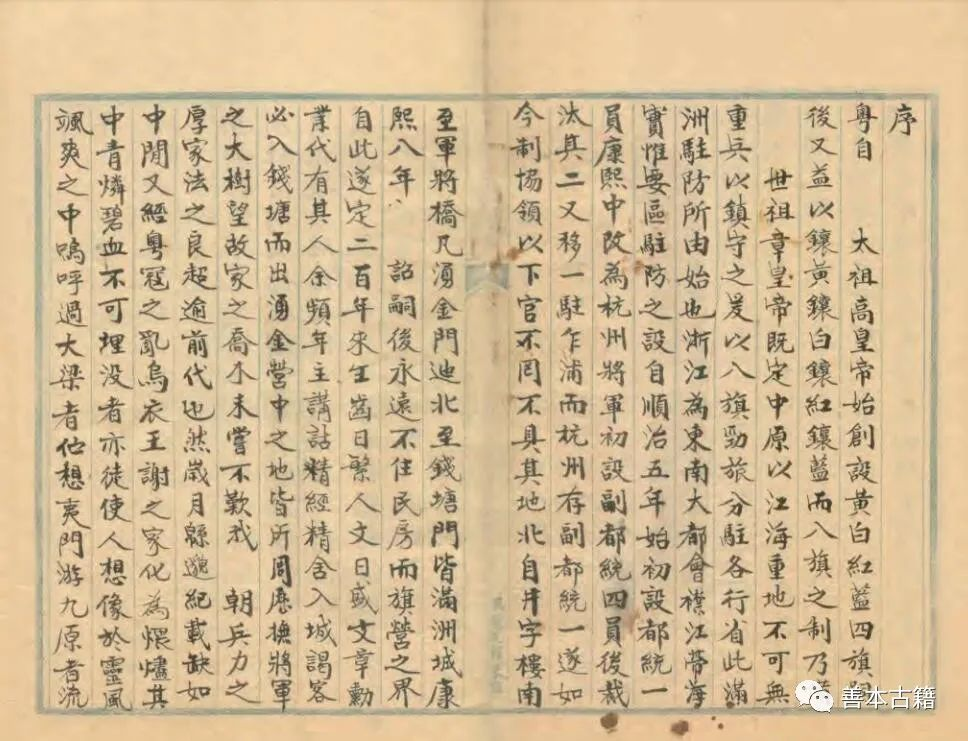 序
粵自　太祖高皇帝始創設黃白紅藍四旗
後又益以鑲黃鑲白鑲紅鑲藍而八旗之制乃
世祖章皇帝既定中原以江海重地不可無
重兵以鎮守之爰以八旗勁旅分駐各行省此滿
洲駐防所由始也浙江為東南大都會襟江帶海
實惟要區駐防之設自順治五年始初設都統一
員康熙中改為杭州將軍初設副都統四員後裁
汰其二又移一駐乍浦而杭州存副都統一遂如
今制協領以下官不罔不具其地北自井字樓南
至軍將橋凡湧金門迆北至錢塘門皆滿洲城康
熙八年　詔嗣後永遠不住民房而旗營之界
自此遂定二百年來生齒日繁人文日盛文章勳
業代有其人余頻年主講詁精經精舍入城謁客
必入錢塘而出湧金營中之地皆所周歷撫將軍
之大樹望故家之喬木未嘗不歎我　朝兵力之
厚家法之良超逾前代也然歲月緜邈紀載缺如
中間又經粵寇之亂烏衣王謝之家化為煨燼其
中青燐碧血不可埋没者亦徒使人想像於靈風
颯爽之中嗚呼過大梁者佇想夷門游九原者流
善本古籍